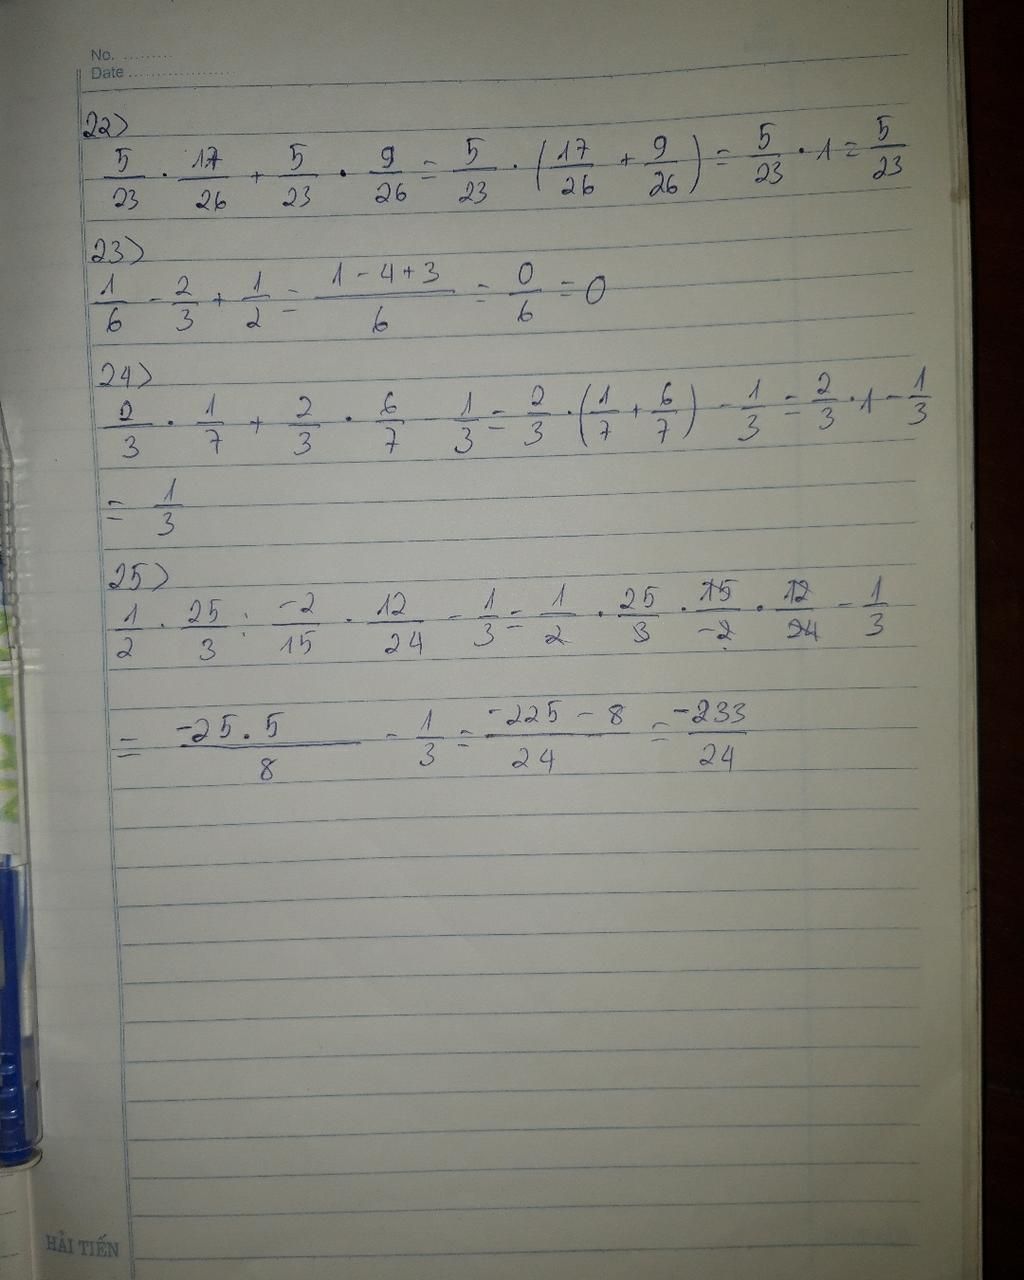 No. .........
Date ...................
22)
5/23 · 17/26 + 5/23 · 9/26 = 5/23 · (17/26 + 9/26) = 5/23 · 1 = 5/23
23)
1/6 - 2/3 + 1/2 = (1 - 4 + 3)/6 = 0/6 = 0
24)
2/3 · 1/7 + 2/3 · 6/7 - 1/3 = 2/3 · (1/7 + 6/7) - 1/3 = 2/3 · 1 - 1/3
= 1/3
25)
1/2 · 25/3 : -2/15 · 12/24 - 1/3 = 1/2 · 25/3 · 15/-2 · 12/24 - 1/3
= (-25 . 5)/8 - 1/3 = (-225 - 8)/24 = -233/24
HẢI TIẾN